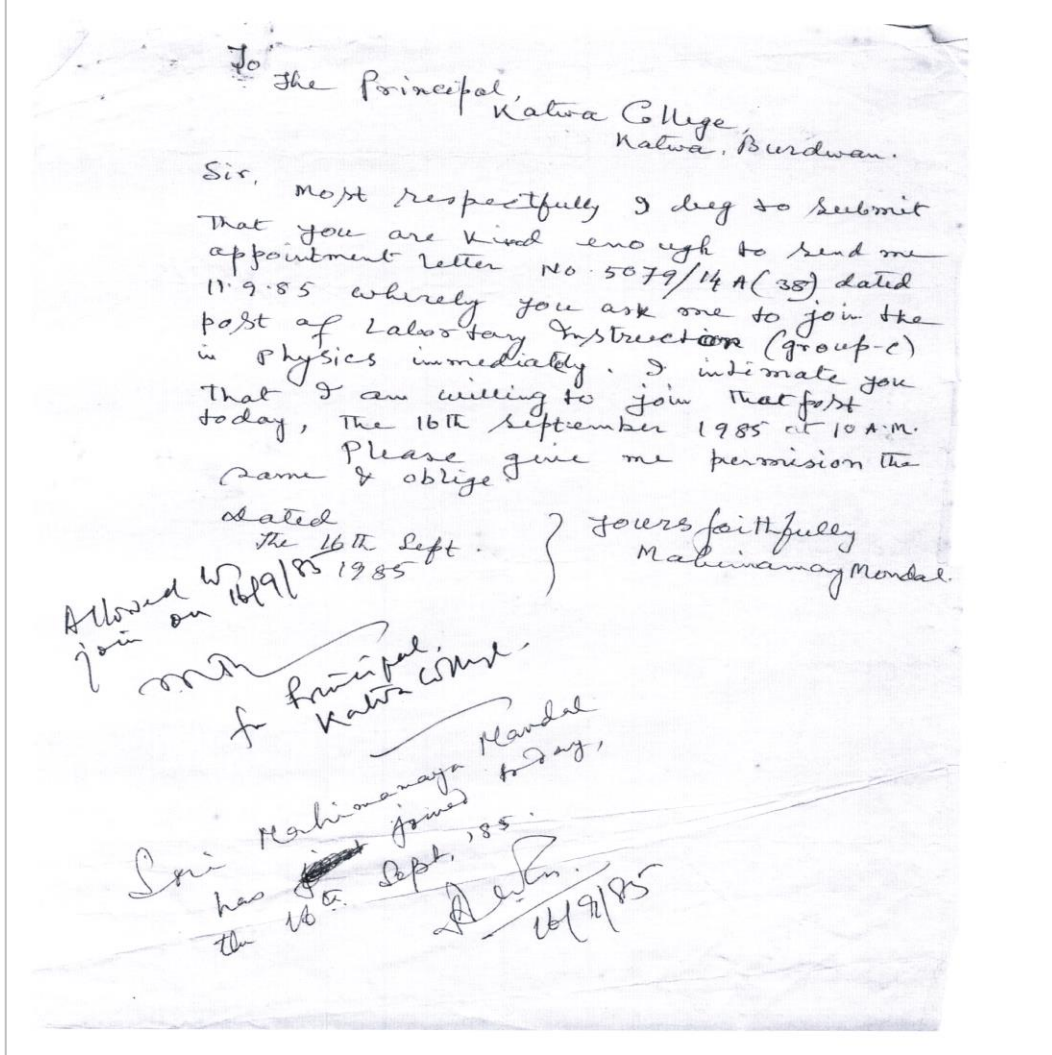 To
The Principal,
Katwa College,
Katwa, Burdwan.
Sir,
Most respectfully I beg to submit
That you are kind enough to send me
appointment letter No. 5079/14A(38) dated
11.9.85 whereby you ask me to join the
post of Laboratory Instructor (group-c)
in Physics immediately. I intimate you
That I am willing to join That post
today, The 16th September 1985 at 10 A.M.
Please give me permision the
same & oblige
Dated
The 16th Sept.
1985
Yours faithfully
Mahimamay Mondal.
Allowed to
join on 16/9/85
for Principal,
Katwa College.
Sri Mahimamaya Mandal
has joined today,
the 16th Sept., '85.
16/9/85